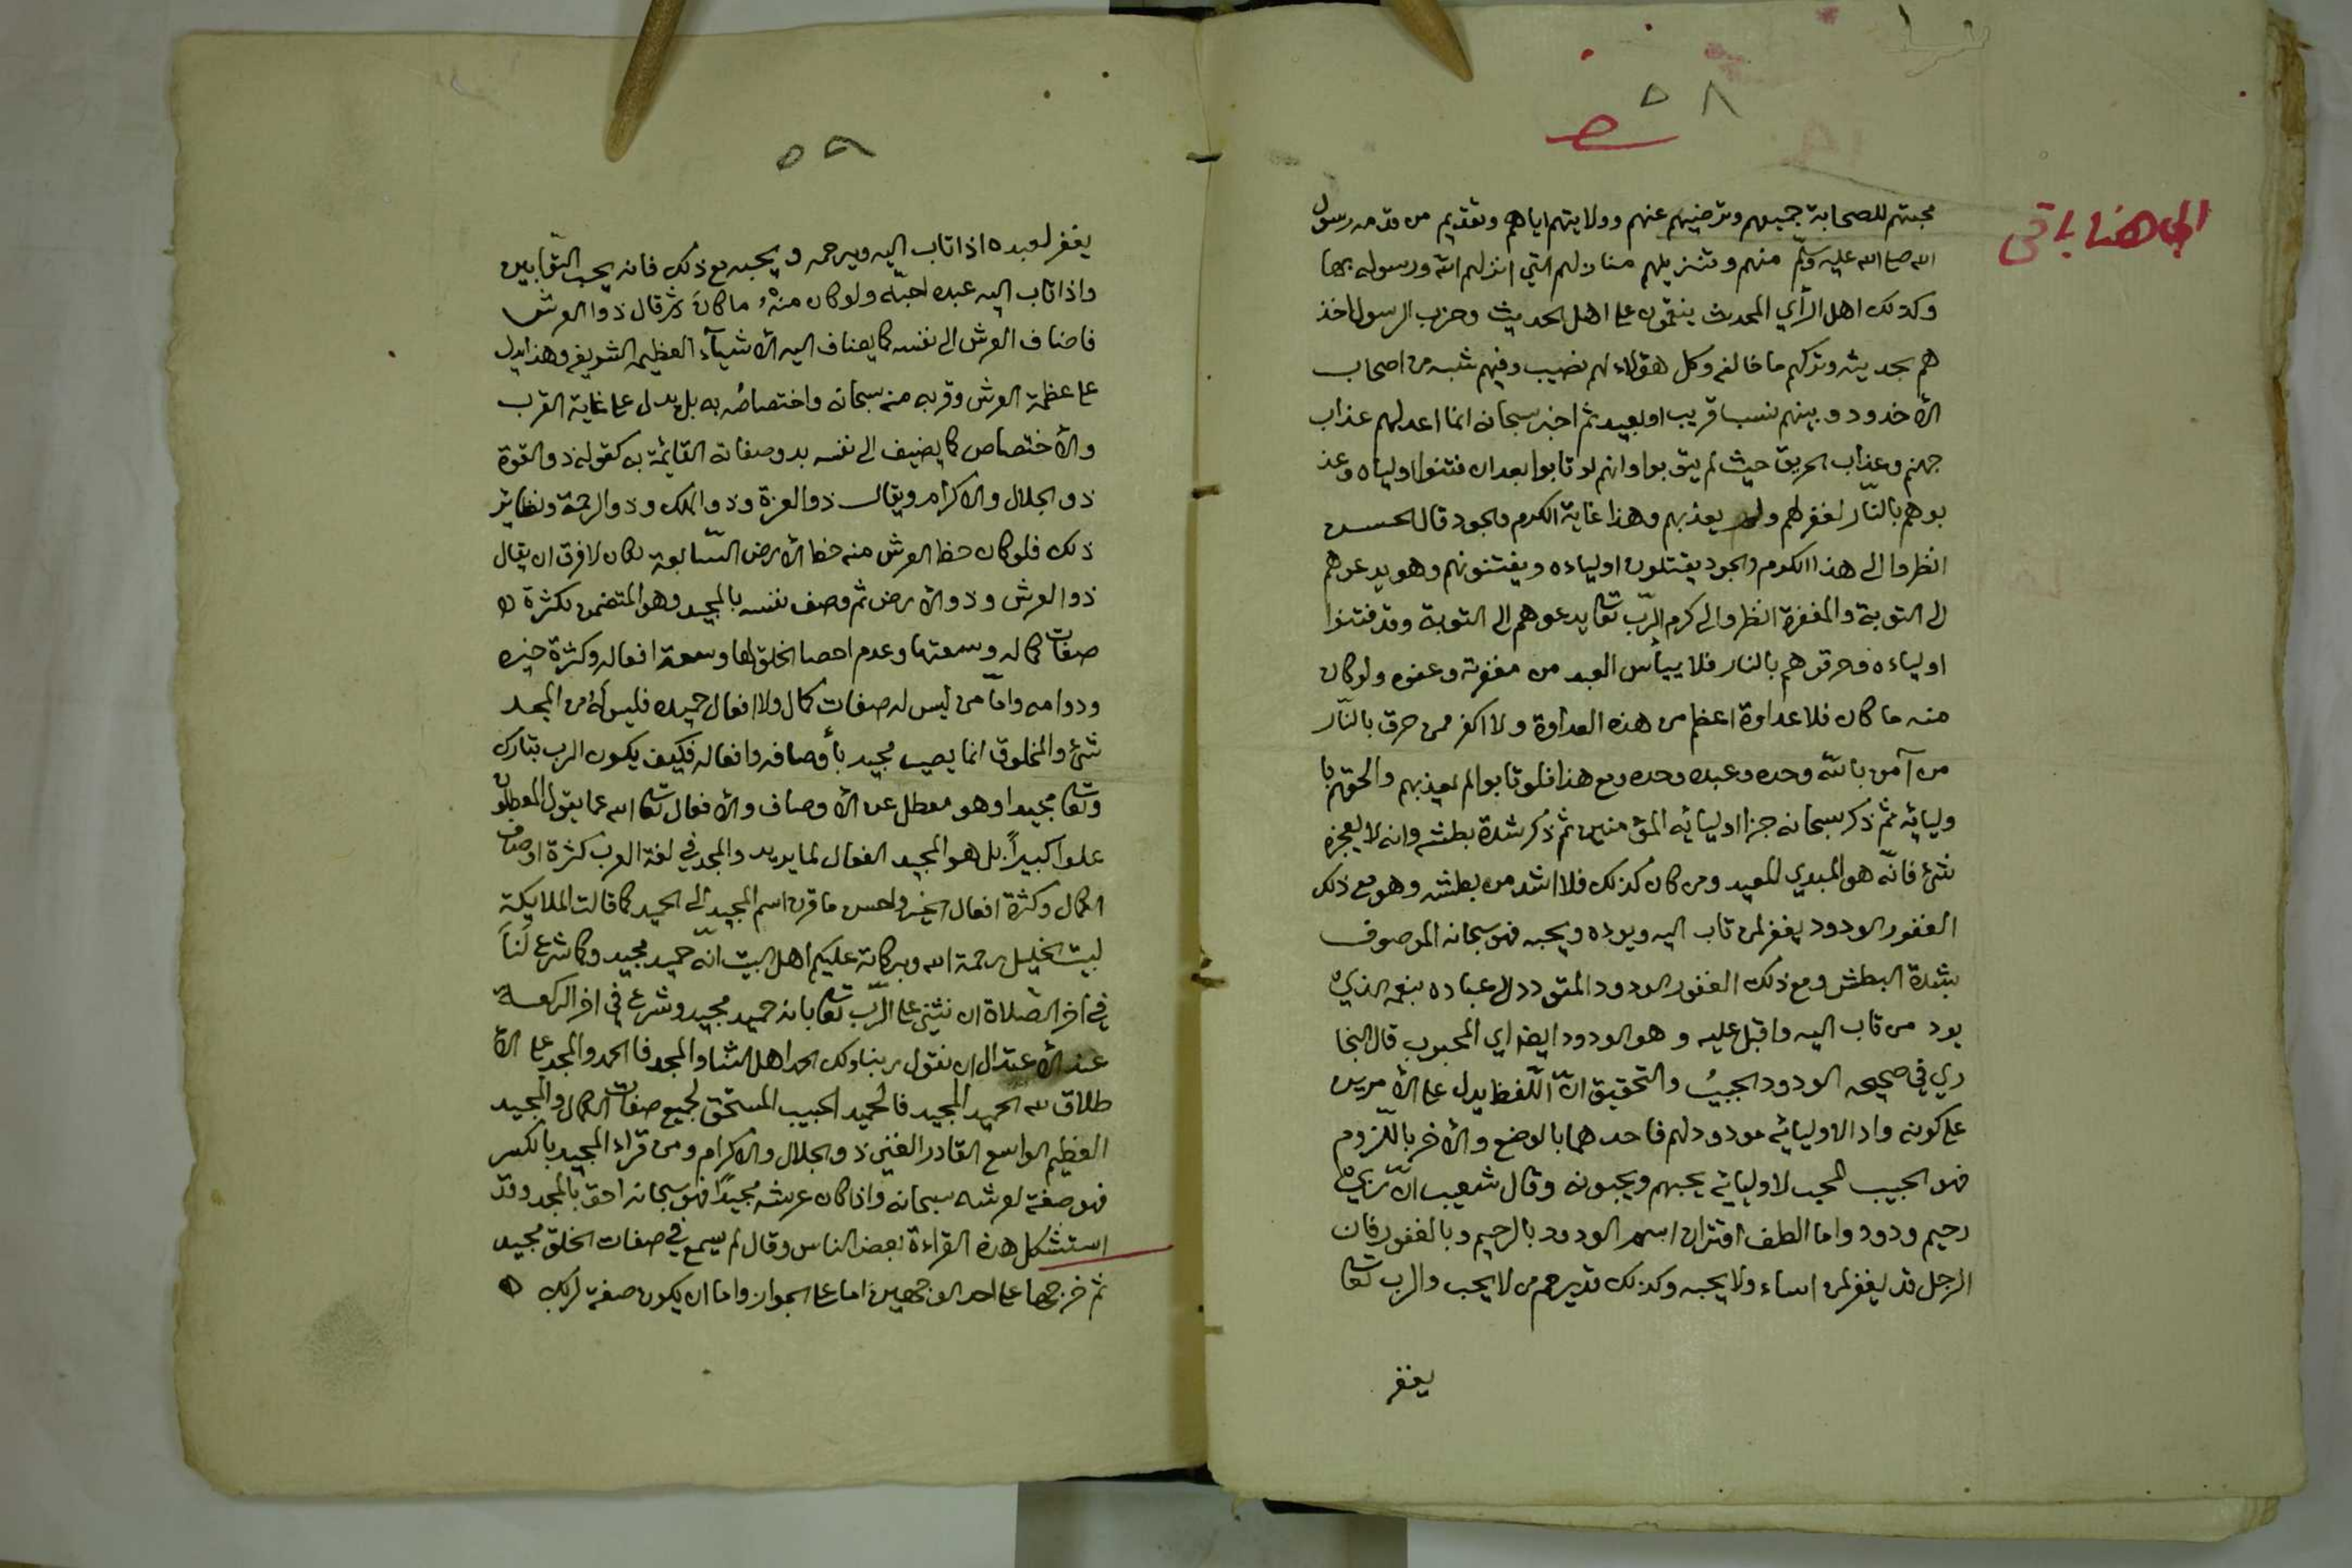 ٥٨
الى هنا باقى
محبتهم للصحابة جميعهم وترضيهم عنهم وولايتهم اياهم وتقديم من قدمه رسول
الله صلى الله عليه وسلم منهم وتنزيلهم منازلهم التي انزلهم الله ورسوله بها
وكذلك اهل الرأي المحدث ينقمون على اهل الحديث وحزب الرسول اخذ
هم بحديثه وتركهم ما خالفه وكل هؤلاء لهم نصيب وفيهم شبه من اصحاب
الأخدود وبينهم نسب قريب او بعيد ثم اخبر سبحانه انما اعد لهم عذاب
جهنم وعذاب الحريق حيث لم يتوبوا وانهم لو تابوا بعد ان فتنوا اولياه وعذ
بوهم بالنار لغفر لهم ولم يعذبهم وهذا غاية الكرم والجود قال الحسن
انظروا الى هذا الكرم والجود يقتلون اولياءه ويفتنونهم وهو يدعوهم
الى التوبة والمغفرة انظروا الى كرم الرّب تعا يدعوهم الى التوبة وقد فتنوا
اولياءه وحرقوهم بالنار فلا ييأس العبد من مغفرته وعفوه ولو كان
منه ما كان فلا عداوة اعظم من هذه العداوة ولا اكفر ممن حرق بالنّار
من آمن باللّه وحده وعبده وحده ومع هذا فلو تابوا لم يعذبهم والحقهم با
وليائه ثم ذكر سبحانه جزا اوليائه المؤمنين ثم ذكر شدة بطشه وانه لا يعجزه
شئ فانّه هو المبدي المعيد ومن كان كذلك فلا اشد من بطشه وهو مع ذلك
الغفور الودود يغفر لمن تاب اليه ويوده ويحبه فهو سبحانه الموصوف
بشدة البطش ومع ذلك الغفور الودود المتودد الى عباده بنعمه الذي
يود من تاب اليه واقبل عليه وهو الودود ايضا اي المحبوب قال البخا
ري في صحيحه الودود الحبيبُ والتحقيق انّ اللّفظ يدل على الأمرين
على كونه وادا لاوليائه مودودلهم فاحدهما بالوضع والأخر باللّزوم
فهو الحبيب المحب لاوليائه يحبهم ويحبونه وقال شعيب انّ ربي
رحيم ودود وما الطف اقتران اسم الودود بالرحيم وبالغفور فان
الرجل قد يغفر لمن اساء ولا يحبه وكذلك قد يرحم من لا يحب والرب تعا
يغفر
٥٩
يغفر لعبده اذا تاب اليه ويرحمه ويحبه مع ذلك فانه يحب التوّابين
واذا تاب اليه عبده احبّه ولو كان منهُ ما كانَ ثم قال ذوا العرش
فاضاف العرش الى نفسه كما يضاف اليه الأشيآء العظيمه الشريفه وهذا يدل
على عظمة العرش وقربه منه سبحانه واختصاصُه به بل يدل على غاية القرب
والأختصاص كما يضيف الى نفسه بذو صفاته القائمة به كقوله ذو القوة
ذو الجلال والاكرام ويقال ذوا العزة وذوا الملك وذوا الرحمة ونظاير
ذلك فلو كان حظ العرش منه حظ الأرض السّابعة لكان لا فرق ان يقال
ذوا العرش وذو الأرض ثم وصف نفسه بالمجيد وهو المتضمن لكثرة
صفات كماله وسعتها وعدم احصا الخلق لها وسعة افعاله وكثرة خيره
ودوامه وامّا من ليس له صفات كمال ولا افعال حميده فليس لهُ من المجد
شئ والمخلوق انما يصير مجيد بأوصافه وافعاله فكيف يكون الرب تبارك
وتعا مجيدا وهو معطل عن الأوصاف والأفعال تعا الله عما يقول المعطلون
علوا كبيراً بل هو المجيد الفعال لما يريد والمجد في لغة العرب كثرة اوصاف
الكمال وكثرة افعال الخير واحسن ما قرن اسم المجيد الى الحميد كما قالت الملايكة
لبيت الخليل رحمة الله وبركاته عليكم اهل البيت انّه حميد مجيد وكما شرع لَناَ
في اخر الصّلاة ان نثني على الرّب تعا بانه حميد مجيد وشرع في اخر الركعة
عند الأعتدال ان نقول ربنا ولك الحمد اهل الثنا والمجد فالحمد والمجد على الأ
طلاق لله الحميد المجيد فالحميد الحبيب المستحق لجميع صفات الكمال والمجيد
العظيم الواسع القادر الغني ذو الجلال والاكرام ومن قراء المجيد بالكسر
فهو صفة لعرشه سبحانه واذا كان عرشه مجيدًا فهو سبحانه احق بالمجد وقد
استشكل هذه القراءة بعض الناس وقال لم يسمع في صفات الخلق مجيد
ثم خرجها على احد الوجهين اما على الجوار واما ان يكون صفة لربك